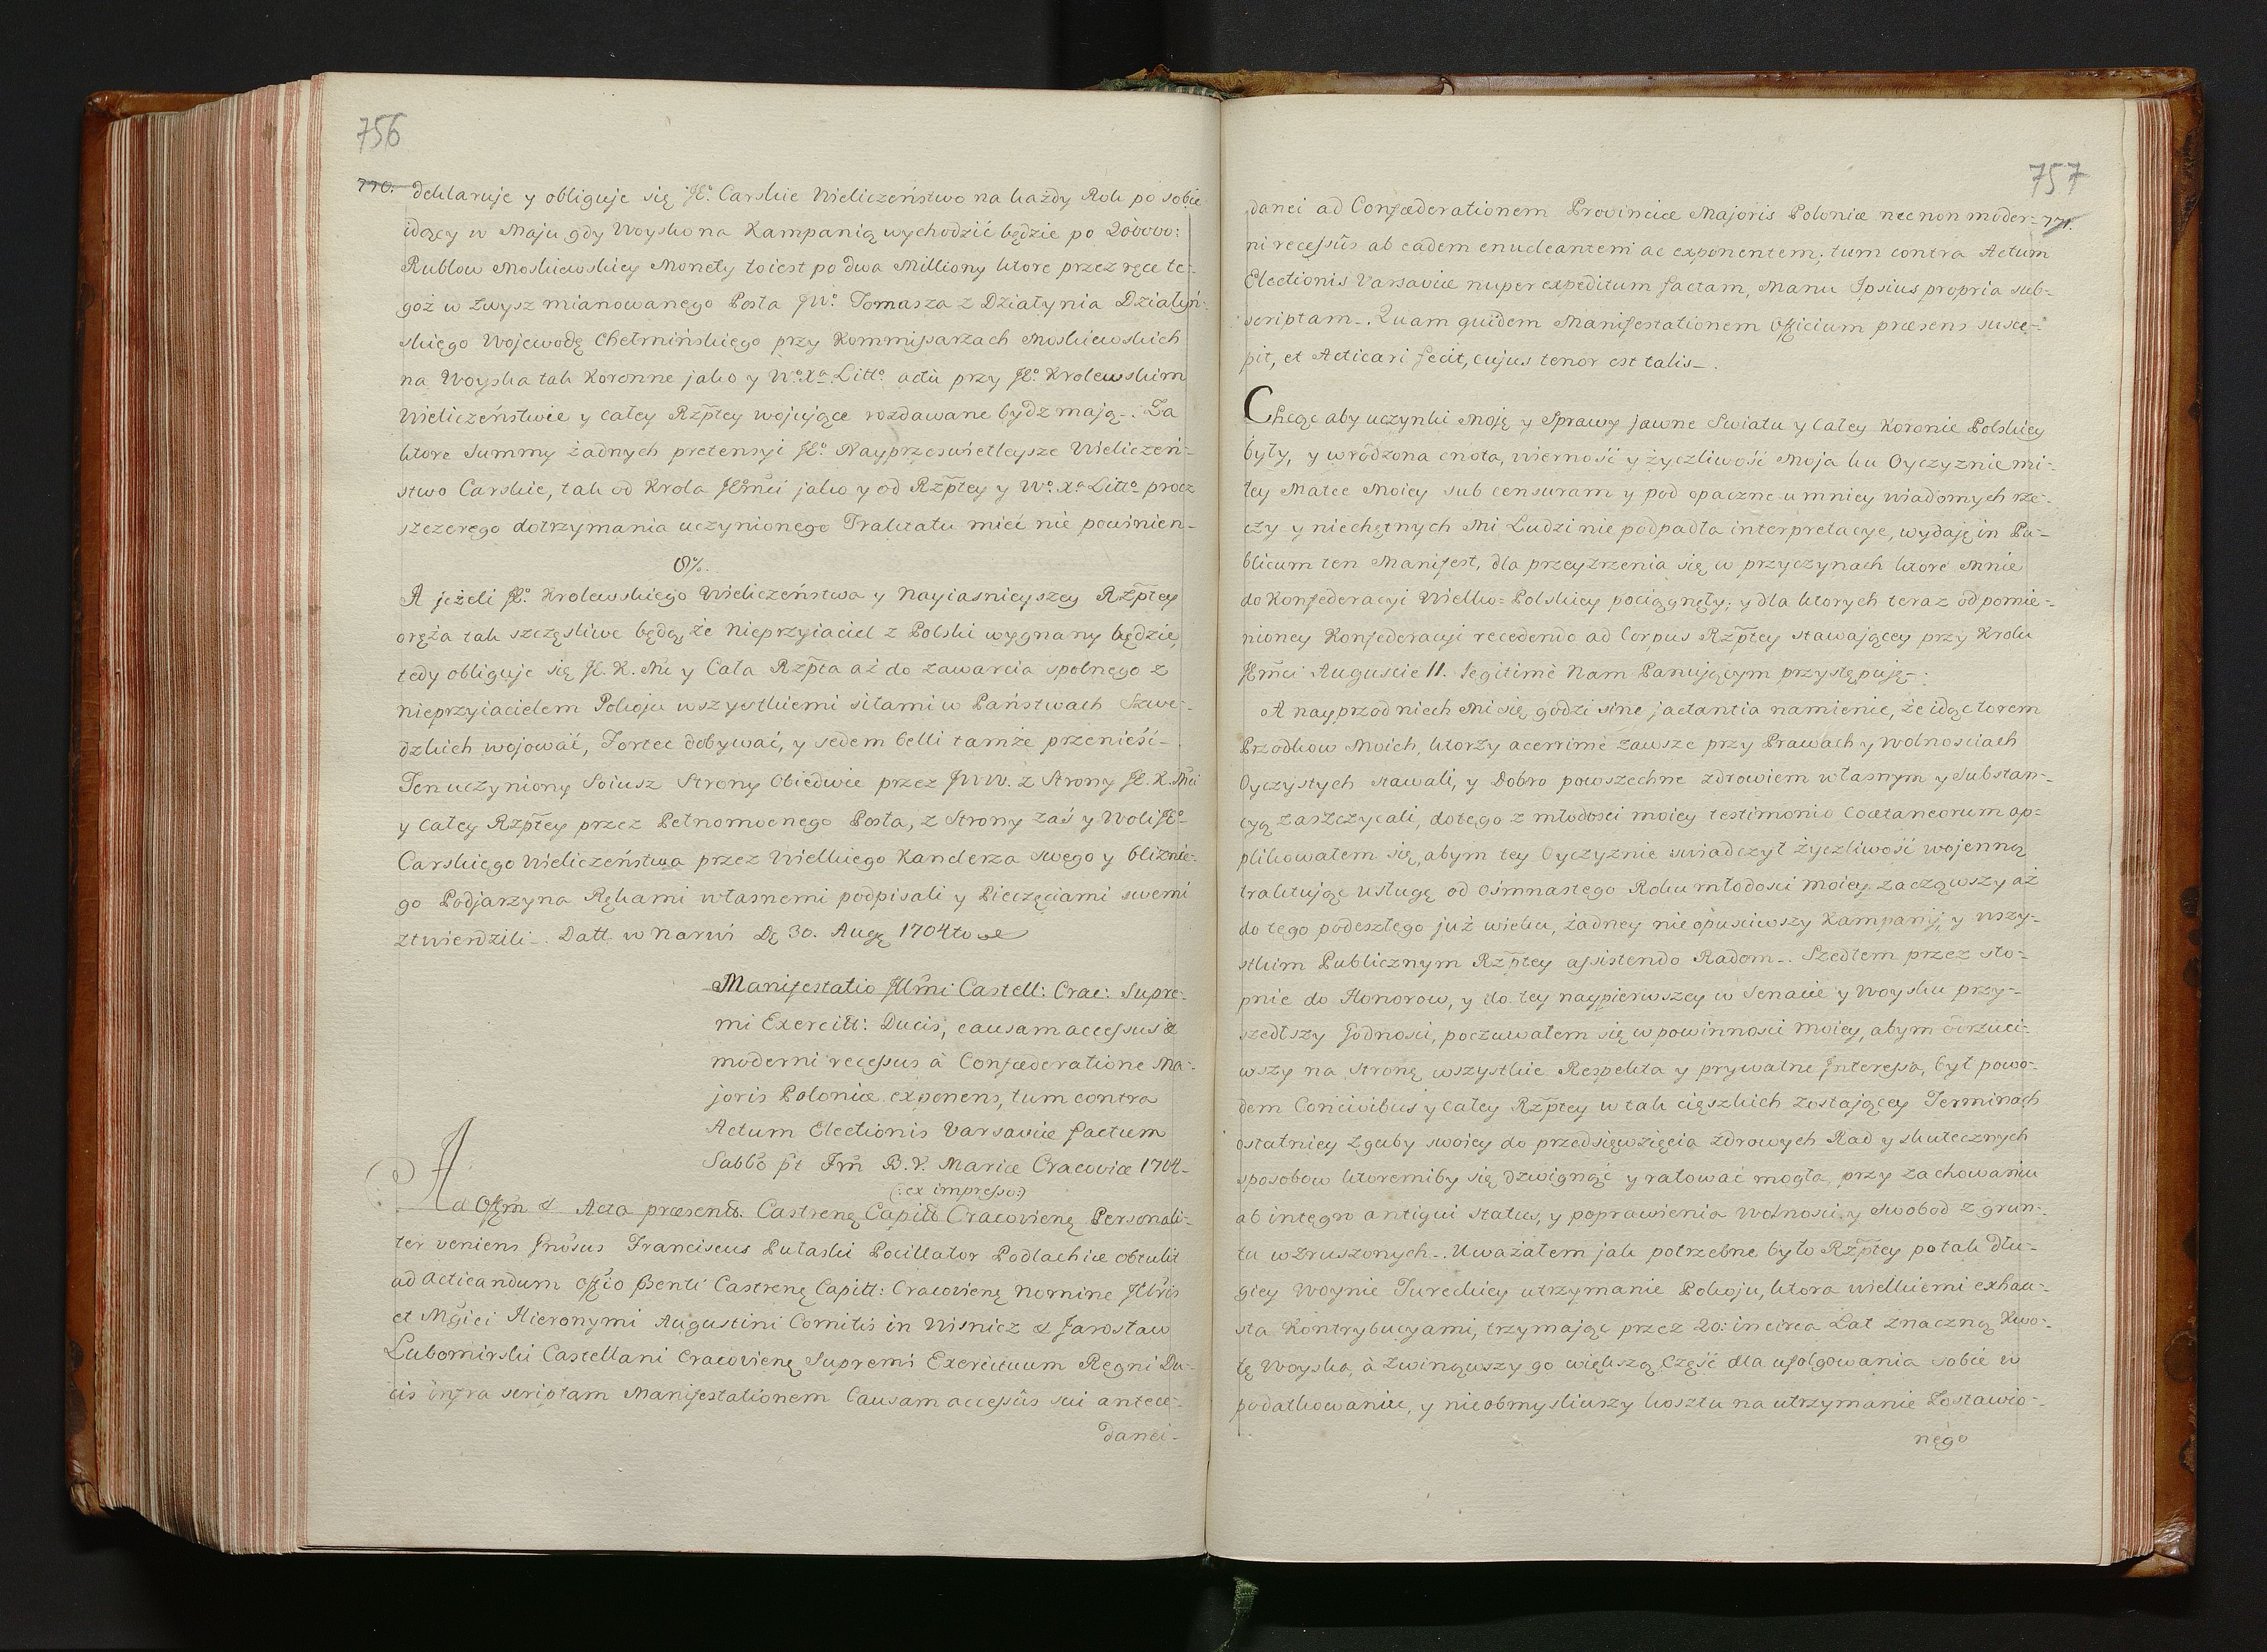 756
770. deklaruje y obliguje się JE° Carskie Wieliczeństwo na każdy Rok po sobie
idący w Maju gdy Woysko na Kampanią wychodzić będzie po 200000:
Rublow Moskiewskiey Monety toiest po dwa Milliony ktore przez ręce te-
goż w zwysz mianowanego Posła JW° Tomasza z Działynia Działyń-
skiego Wojewodę Chełmińskiego przy Kommissarzach Moskiewskich
na Woyska tak Koronne jako y W°. Xa. Litto. actu przy JE°. Krolewskim
Wieliczeństwie y całey Rzptey wojujące rozdawane bydz mają-. Za
ktore Summy żadnych pretensyi JE°. Nayprześwietleysze Wieliczeń-
stwo Carskie, tak od Krola JEmci jako y od Rzptey y W°. Xa. Litto procz
szczerego dotrzymania uczynionego Traktatu mieć nie powinien-
8%.
A jeżeli JE°. Krolewskiego Wieliczeństwa y Nayiasnieyszey Rzptey
oręża tak szczęsliwe będą, że Nieprzyiaciel z Polski wygnany będzie,
tedy obliguje się JE. K. Mć y Cała Rzpta aż do zawarcia spolnego z
nieprzyiacielem Pokoju wszystkiemi siłami w Państwach Szwe-
dzkich wojować, Fortec dobywać, y sedem belli tamże przenieść-
Ten uczyniony Soiusz Strony Obiedwie przez JWW. z Strony JE. K. Mci
y całey Rzptey przez Pełnomocnego Posła, z Strony zaś y Woli JE°
Carskiego Wieliczeństwa przez Wielkiego Kanclerza swego y bliznie-
go Podjarzyna Rękami własnemi podpisali y Pieczęciami swemi
ztwierdzili-. Datt. w Narwi Dę 30. Aug 1704to
Manifestatio Illmi Castell: Crac: Supre-
mi Exercitt: Ducis, causam accessus &
moderni recessus à Confæderatione Ma-
joris Poloniæ exponens, tum contra
Actum Electionis Varsaviæ factum
Sabbo pt Fm B. V. Mariæ Cracoviæ 1704-
(:ex impresso:)
Ad Offm & Acta præsentt. Castrenę Capitt Cracovienę Personali-
ter veniens Gnosus Franciscus Pułaski Pocillator Podlachiæ obtulit
ad acticandum Offio Psenti Castrenę Capitt: Cracovienę nomine Illris
et Mgici Hieronymi Augustini Comitis in Wisnicz & Jarosław
Lubomirski Castellani Cracovienę Supremi Exercituum Regni Du-
cis infra scriptam Manifestationem Causam accessûs sui antece-
danei-
757
danei ad Confæderationem Provinciæ Majoris Poloniæ necnon moder- 771.
ni recessûs ab eadem enucleantem ac exponentem; tum contra Actum
Electionis Varsaviæ nuper expeditum factam, Manu Ipsius propria sub-
scriptam-. Quam quidem Manifestationem Officium præsens susce-
pit, et Acticari fecit, cujus tenor est talis-.
Chcąc aby uczynki Moję y Sprawy jawne Swiatu y całey Koronie Polskiey
były, y wrodzona cnota, wierność y życzliwość Moja ku Oyczyznie mi-
łey Matce Moiey sub censuram y pod opaczne u mniey wiadomych rze-
czy y niechętnych Mi Ludzi nie podpadła interpretacye, wydaję in Pu-
blicum ten Manifest, dla przeyzrzenia się w przyczynach ktore Mnie
do Konfederacyi Wielko-Polskiey pociągnęły; y dla ktorych teraz od pomie-
nioney Konfederacyi recedendo ad Corpus Rzptey stawającey przy Krolu
JEmci Auguscie II. legitime Nam Panującym przystępuję-.
A nayprzod niech Mi się godzi sine jactantia namienić, że idąc torem
Przodkow Moich, ktorzy acerrime zawsze przy Prawach y wolnosciach
Oyczystych stawali, y Dobro powszechne zdrowiem własnym y Substan-
cyą zaszczycali, dotego z młodosci moiey testimonio Coætaneorum ap-
plikowałem się, abym tey Oyczyznie swiadczył życzliwość wojenną
traktując usługę od ośmnastego Roku młodosci moiey zacząwszy aż
do tego podeszłego już wieku, żadney nieopusciwszy Kampanij, y wszy-
stkim Publicznym Rzptey assistendo Radom-. Szedłem przez sto-
pnie do Honorow, y do tey naypierwszey w Senacie y Woysku przy-
szedłszy Godnosci, poczuwałem się w powinnosci moiey, abym odrzuci-
wszy na stronę wszystkie Respekta y prywatne Interessa, był powo-
dem Concivibus y całey Rzptey w tak cięszkich zostającey Terminach
ostatniey zguby swoiey do przedsięwzięcia zdrowych Rad y skutecznych
sposobow ktoremiby się dzwignąć y ratować mogła, przy zachowaniu
ab integro antiqui status, y poprawienia wolnosci y swobod z grun-
tu wzruszonych-. Uważałem jak potrzebne było Rzptey po tak dłu-
giey Woynie Tureckiey utrzymanie Pokoju, ktora wielkiemi exhau-
sta Kontrybucyami, trzymając przez 20: in circa Lat znaczną kwo-
tę Woyska, à zwinąwszy go większą Część dla ufolgowania sobie w
podatkowaniu, y nieobmysliwszy kosztu na utrzymanie Zostawio-
nego